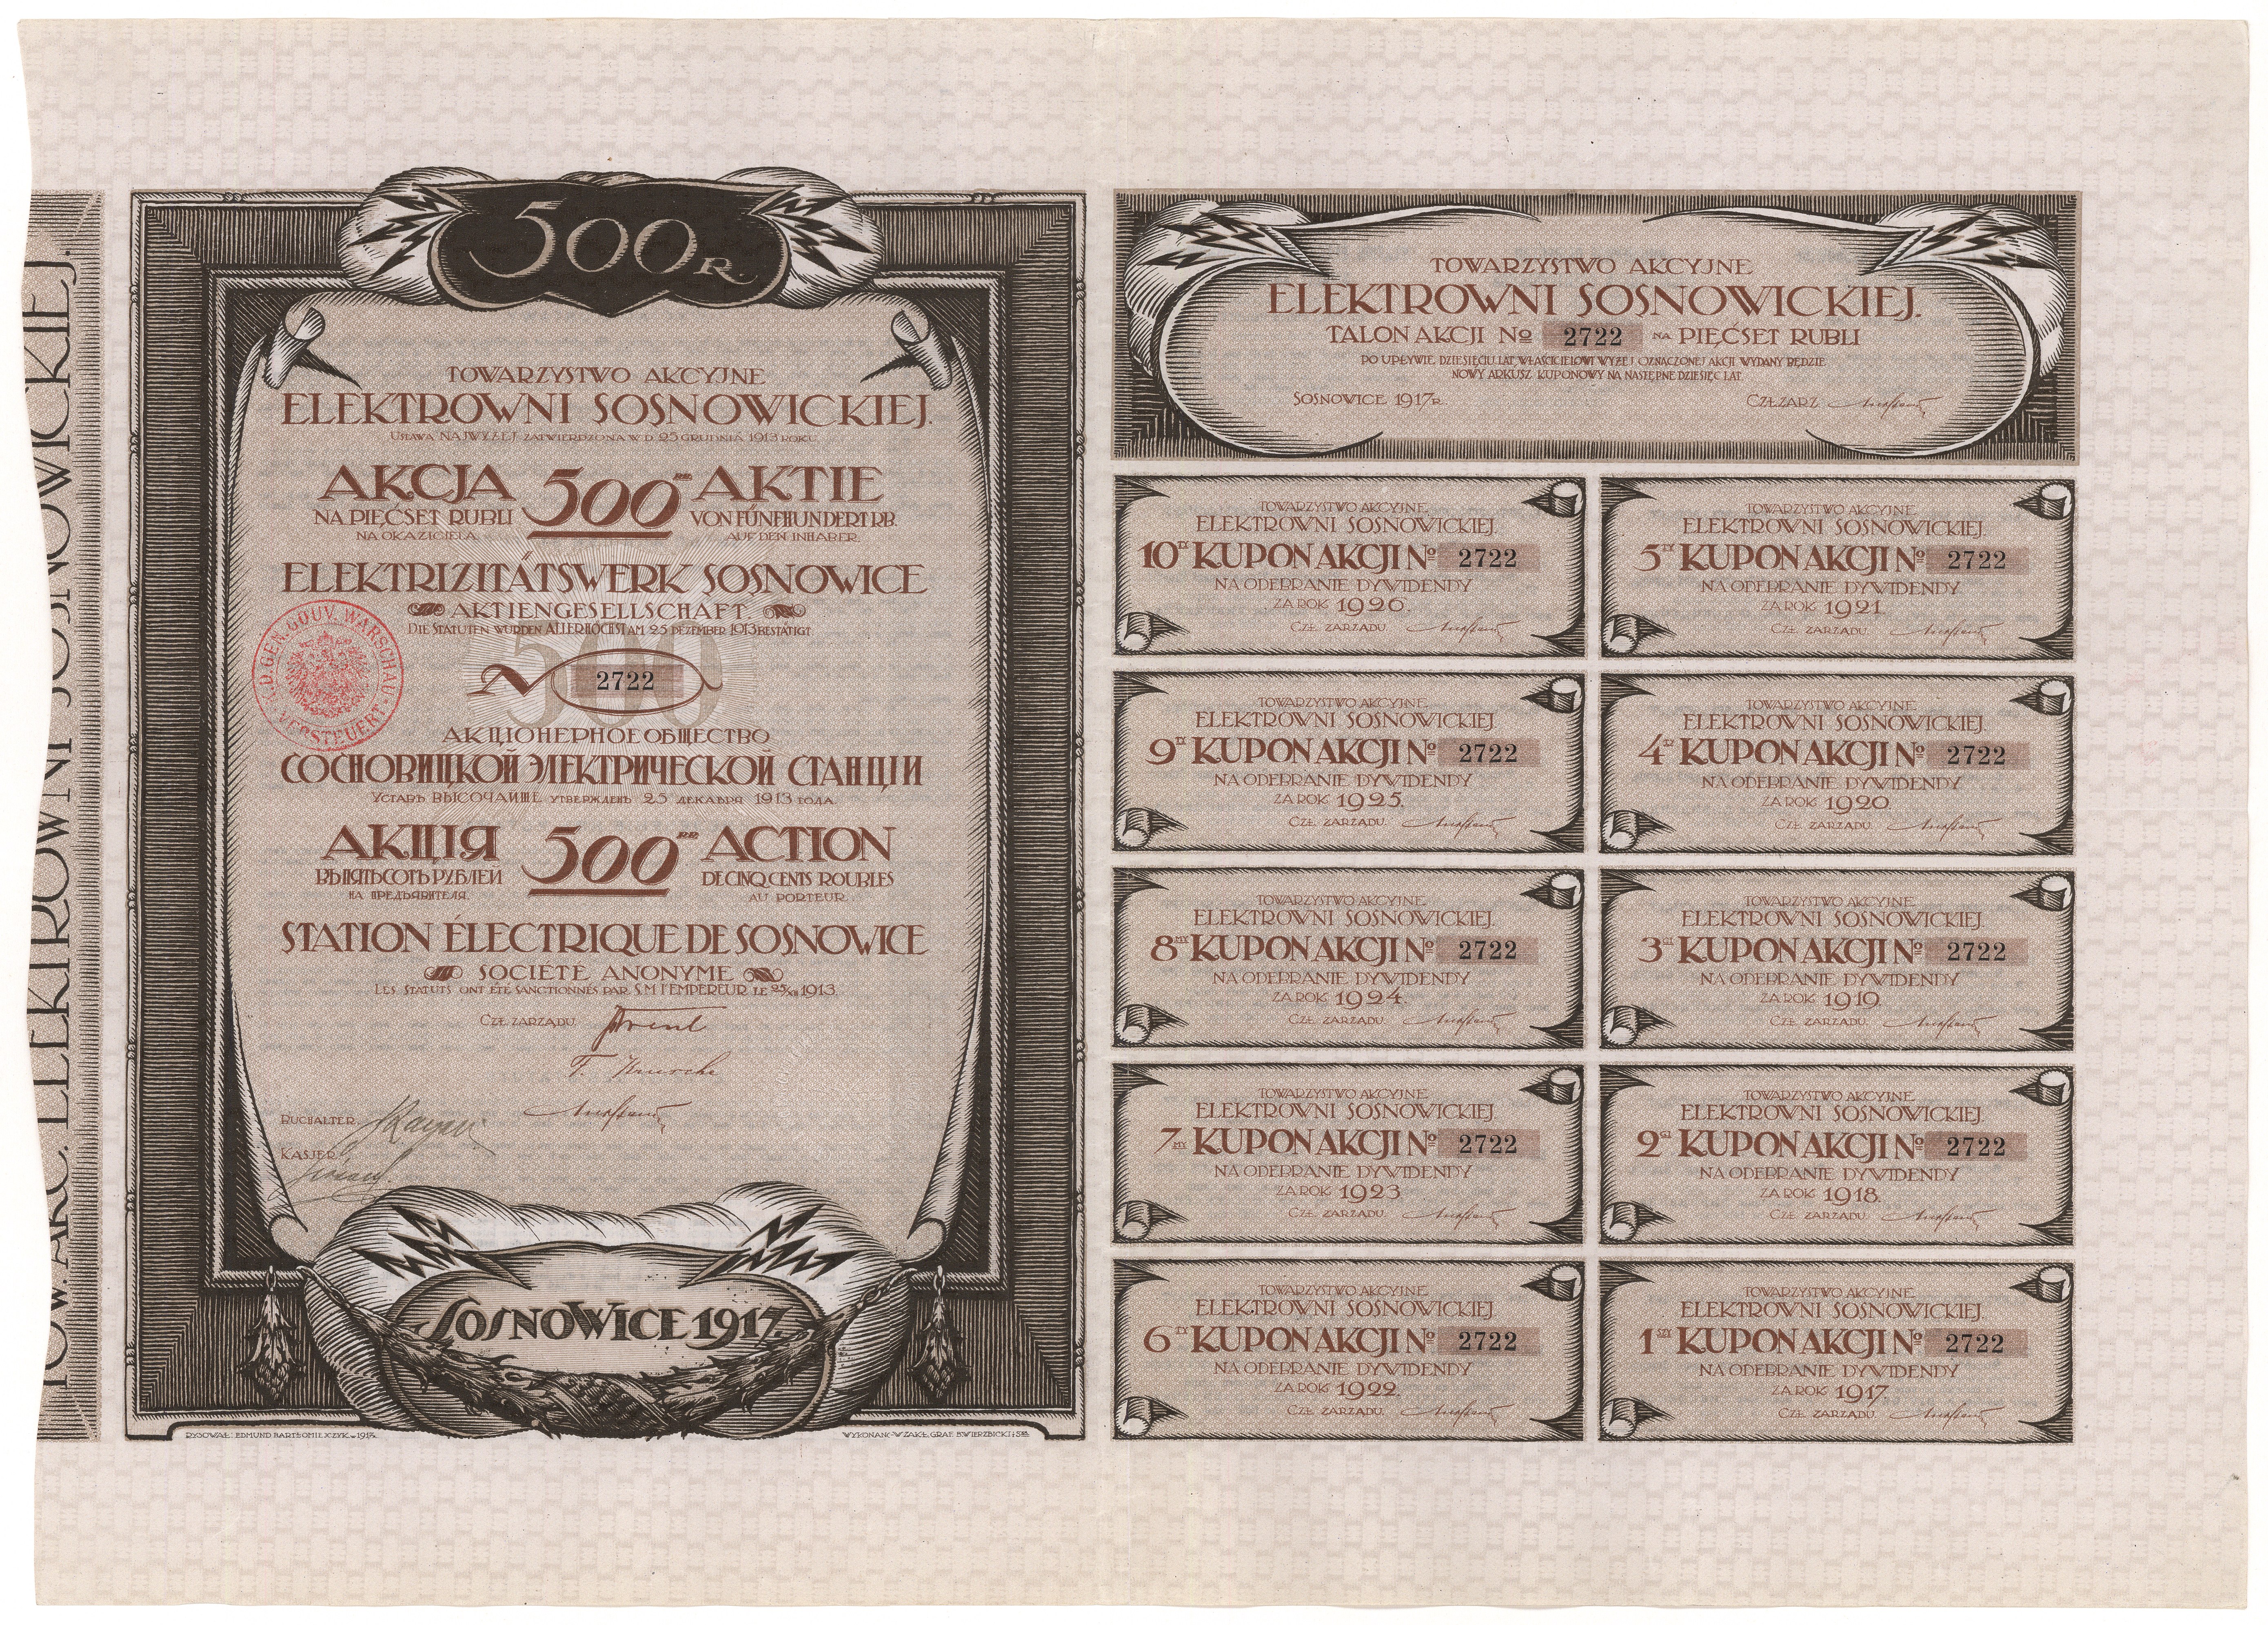 TOW. AKC. ELEKTROWNI SOSNOWICKIEJ.
500 R.
TOWARZYSTWO AKCYJNE
ELEKTROWNI SOSNOWICKIEJ.
USTAWA NAJWYŻEJ ZATWIERDZONA W D. 25 GRUDNIA 1913 ROKU.
AKCJA 500 RB. AKTIE
NA PIĘĆSET RUBLI VON FÜNFHUNDERT RB.
NA OKAZICIELA. AUF DEN INHABER.
ELEKTRIZITÄTSWERK SOSNOWICE
AKTIENGESELLSCHAFT.
DIE STATUTEN WURDEN ALLERHÖCHST AM 25 DEZEMBER 1913 BESTÄTIGT
K. D. GEN. GOUV. WARSCHAU
VERSTEUERT
500
N 2722
АКЦІОНЕРНОЕ ОБЩЕСТВО
СОСНОВИЦКОЙ ЭЛЕКТРИЧЕСКОЙ СТАНЦІИ
УСТАВЪ ВЫСОЧАЙШЕ УТВЕРЖДЕНЪ 25 ДЕКАБРЯ 1913 ГОДА.
АКЦІЯ 500 RB. ACTION
ВЪ ПЯТЬСОТЪ РУБЛЕЙ DE CINQ CENTS ROUBLES
НА ПРЕДЪЯВИТЕЛЯ. AU PORTEUR.
STATION ÉLECTRIQUE DE SOSNOWICE
SOCIÉTÉ ANONYME
LES STATUTS ONT ÉTÉ SANCTIONNÉS PAR S.M. l'EMPEREUR LE 25/XII 1913.
CZŁ. ZARZĄDU
BUCHALTER
KASJER
SOSNOWICE 1917.
RYSOWAŁ: EDMUND BARTŁOMIEJCZYK. W 1917R.
WYKONANO W ZAKŁ. GRAF. B. WIERZBICKI i S-KA
TOWARZYSTWO AKCYJNE
ELEKTROWNI SOSNOWICKIEJ.
TALON AKCJI No 2722 NA PIĘĆSET RUBLI
PO UPŁYWIE DZIESIĘCIU LAT, WŁAŚCICIELOWI WYŻEJ OZNACZONEJ AKCJI WYDANY BĘDZIE
NOWY ARKUSZ KUPONOWY NA NASTĘPNE DZIESIĘĆ LAT.
SOSNOWICE 1917 R. CZŁ. ZARZ.
TOWARZYSTWO AKCYJNE
ELEKTROWNI SOSNOWICKIEJ.
10TY KUPON AKCJI No 2722
NA ODEBRANIE DYWIDENDY
ZA ROK 1926.
CZŁ. ZARZĄDU
TOWARZYSTWO AKCYJNE
ELEKTROWNI SOSNOWICKIEJ.
5TY KUPON AKCJI No 2722
NA ODEBRANIE DYWIDENDY
ZA ROK 1921.
CZŁ. ZARZĄDU
TOWARZYSTWO AKCYJNE
ELEKTROWNI SOSNOWICKIEJ.
9TY KUPON AKCJI No 2722
NA ODEBRANIE DYWIDENDY
ZA ROK 1925.
CZŁ. ZARZĄDU
TOWARZYSTWO AKCYJNE
ELEKTROWNI SOSNOWICKIEJ.
4TY KUPON AKCJI No 2722
NA ODEBRANIE DYWIDENDY
ZA ROK 1920.
CZŁ. ZARZĄDU
TOWARZYSTWO AKCYJNE
ELEKTROWNI SOSNOWICKIEJ.
8MY KUPON AKCJI No 2722
NA ODEBRANIE DYWIDENDY
ZA ROK 1924.
CZŁ. ZARZĄDU
TOWARZYSTWO AKCYJNE
ELEKTROWNI SOSNOWICKIEJ.
3CI KUPON AKCJI No 2722
NA ODEBRANIE DYWIDENDY
ZA ROK 1919.
CZŁ. ZARZĄDU
TOWARZYSTWO AKCYJNE
ELEKTROWNI SOSNOWICKIEJ.
7MY KUPON AKCJI No 2722
NA ODEBRANIE DYWIDENDY
ZA ROK 1923
CZŁ. ZARZĄDU
TOWARZYSTWO AKCYJNE
ELEKTROWNI SOSNOWICKIEJ.
2GI KUPON AKCJI No 2722
NA ODEBRANIE DYWIDENDY
ZA ROK 1918.
CZŁ. ZARZĄDU
TOWARZYSTWO AKCYJNE
ELEKTROWNI SOSNOWICKIEJ.
6TY KUPON AKCJI No 2722
NA ODEBRANIE DYWIDENDY
ZA ROK 1922.
CZŁ. ZARZĄDU
TOWARZYSTWO AKCYJNE
ELEKTROWNI SOSNOWICKIEJ.
1SZY KUPON AKCJI No 2722
NA ODEBRANIE DYWIDENDY
ZA ROK 1917.
CZŁ. ZARZĄDU